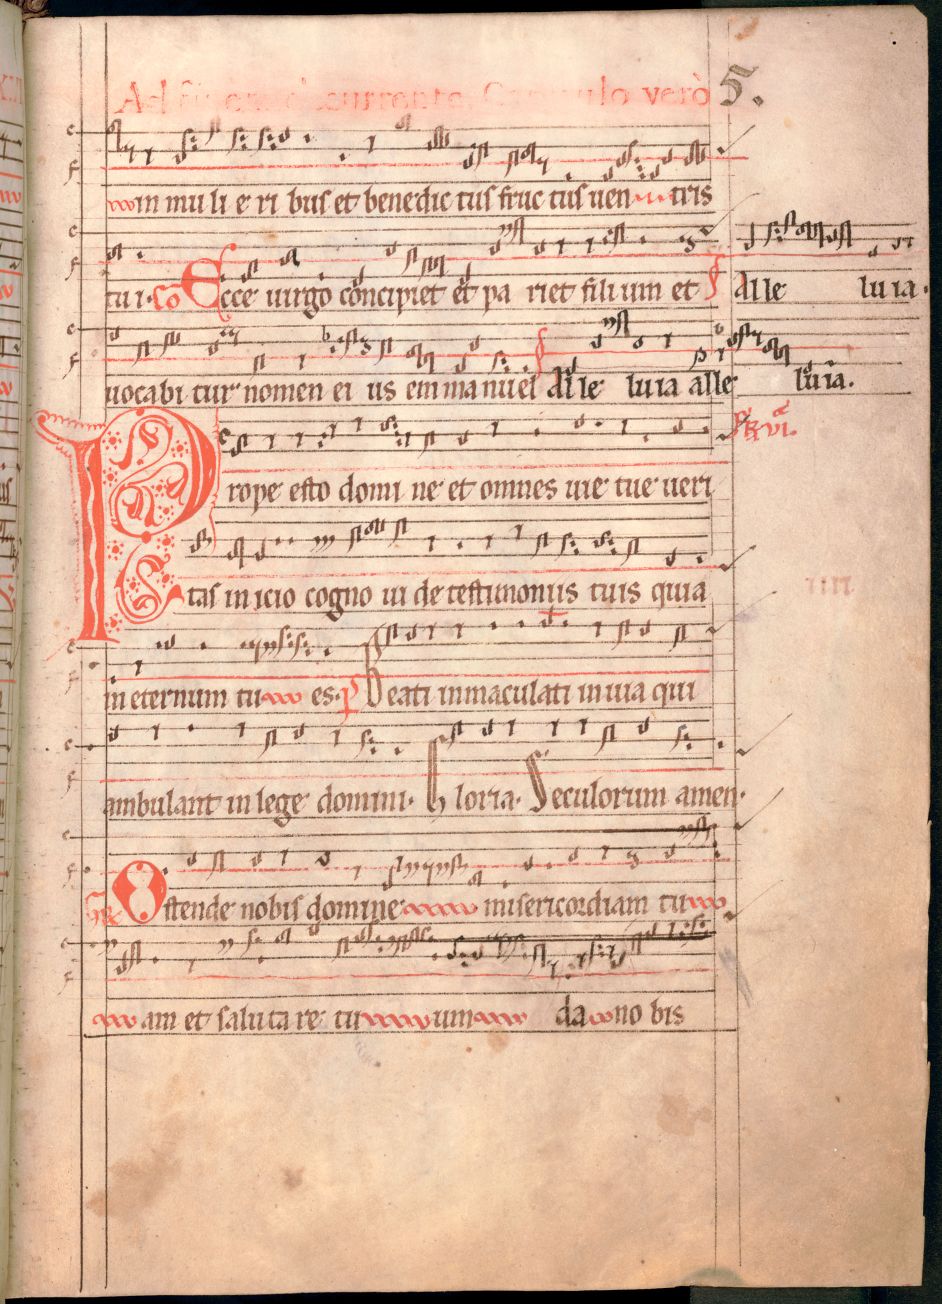 5.
in mu li e ri bus et benedic tus fruc tus uen tris
tu i. Co Ecce uirgo concipiet et pa riet fili um et Alle luia.
uocabi tur nomen ei us emmanuel alle luia alle luia.
Prope esto domi ne et omnes uie tue ueri
tas in icio cogno ui de testimoniis tuis quia
in eternum tu es. p Beati inmaculati in uia qui
ambulant in lege domini. Gloria. Seculorum amen.
Ostende nobis domine misericordiam tu
am et saluta re tu um da no bis